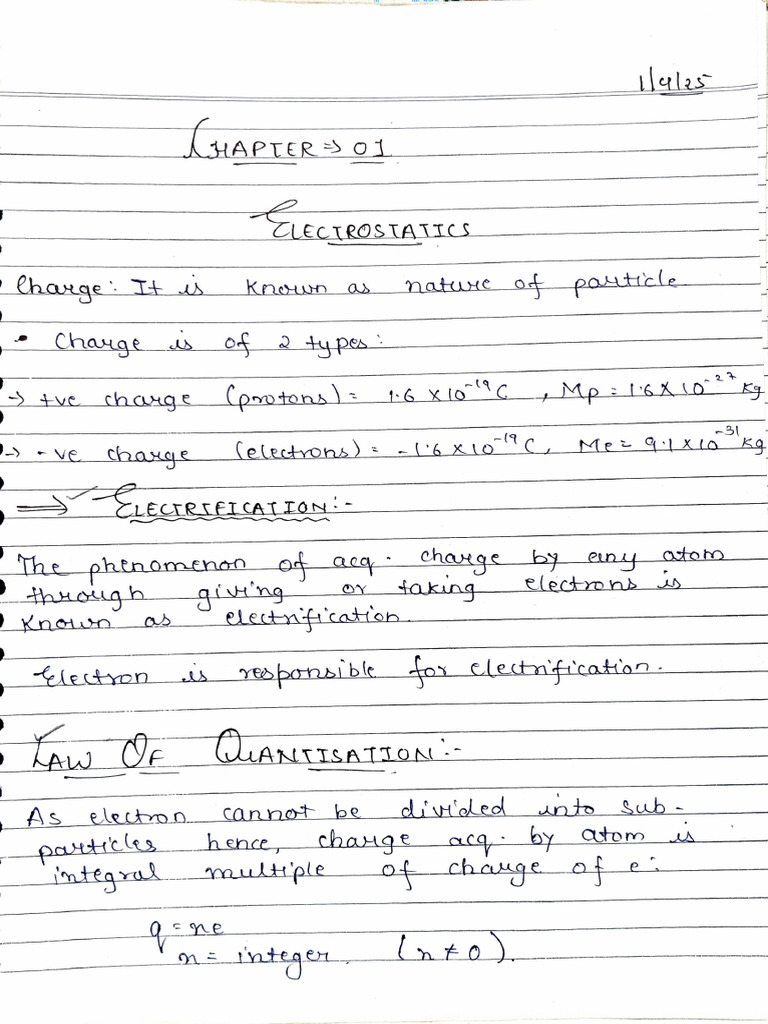 1/4/25
CHAPTER ⇒ 01
ELECTROSTATICS
Charge: It is known as nature of particle
• Charge is of 2 types:
→ +ve charge (protons) = 1.6 × 10⁻¹⁹ C , Mp = 1.6 × 10⁻²⁷ Kg
→ -ve charge (electrons) = -1.6 × 10⁻¹⁹ C, Me = 9.1 × 10⁻³¹ Kg
⇒ ELECTRIFICATION:-
The phenomenon of acq. charge by any atom
through giving or taking electrons is
known as electrification.
Electron is responsible for electrification.
LAW OF QUANTISATION:-
As electron cannot be divided into sub-
particles hence, charge acq. by atom is
integral multiple of charge of e:
q = ne
n = integer. (n ≠ 0).